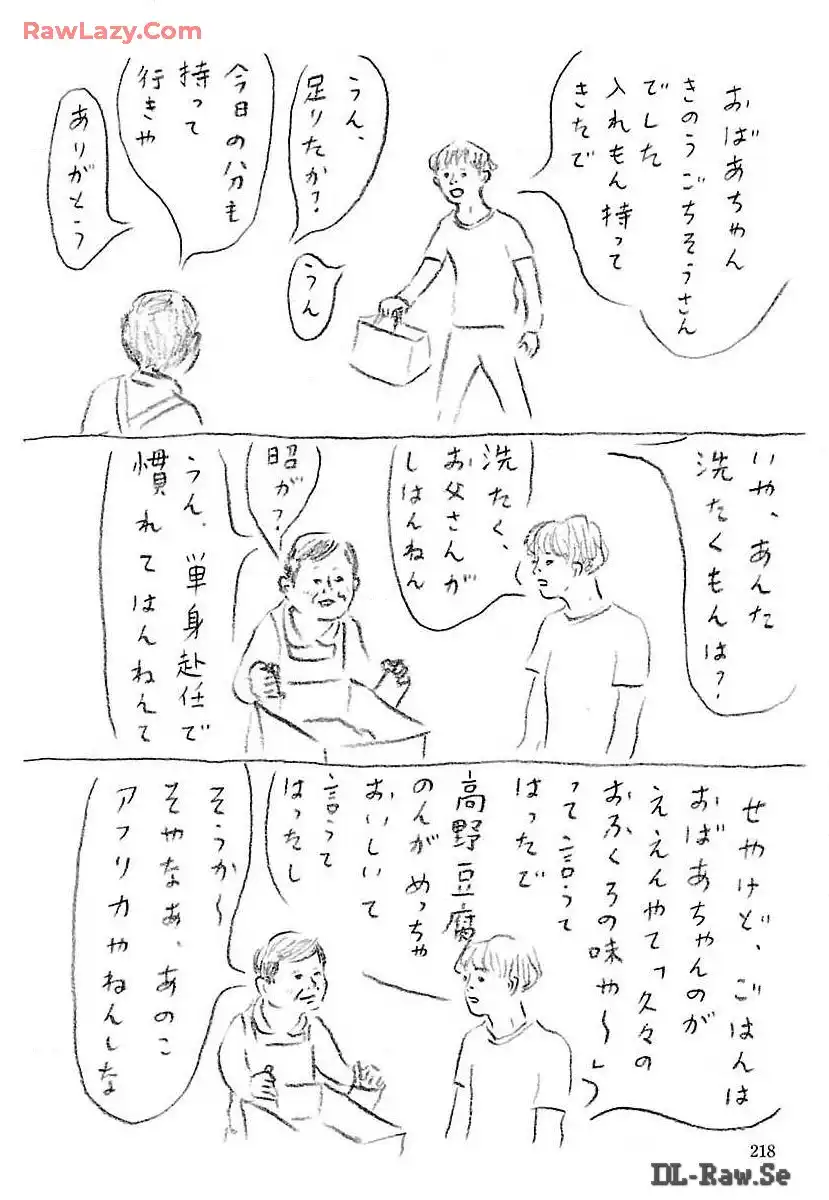 RawLazy.Com
おばあちゃん
きのうごちそうさん
でした
入れもん持って
きたで
うん、
足りたか?
うん
今日の分も
持って
行きや
ありがとう
いや、あんた
洗たくもんは?
洗たく、
お父さんが
しはんねん
昭が?
うん、単身赴任で
慣れてはんねんて
せやけど、ごはんは
おばあちゃんのが
ええんやて「久々の
おふくろの味や〜」
って言うて
はったで
高野豆腐
のんがめっちゃ
おいしいて
言うて
はったし
そうか〜
そやなぁ、あのこ
アフリカやねんしな
218
DL-Raw.Se